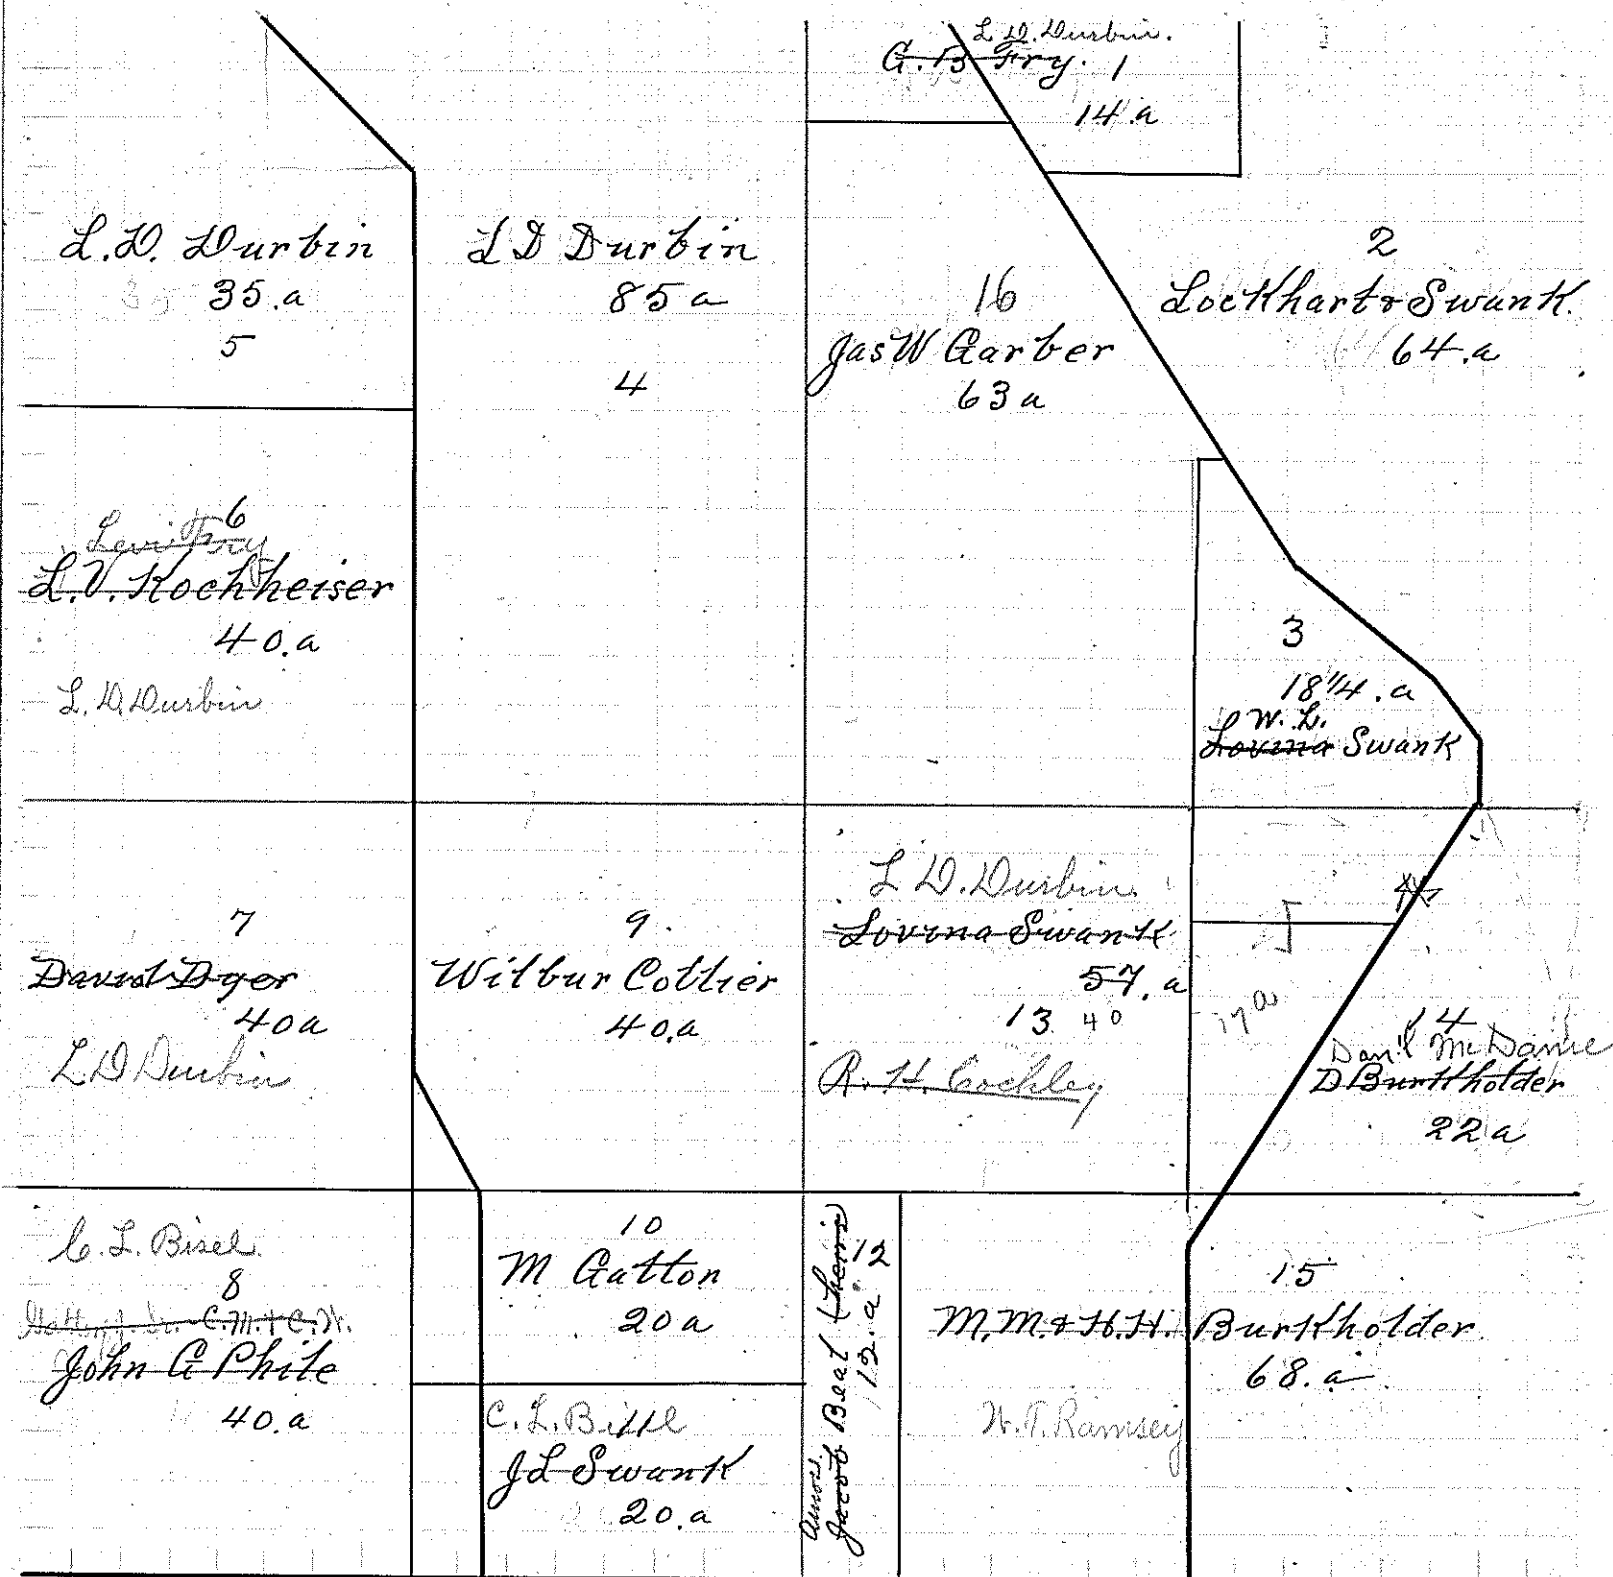 L. D. Durbin.
G. B Fry. 1
14 a
L. D. Durbin
35. a
5
L D Durbin
85 a
4
16
Jas W Garber
63 a
2
Lockhart & Swank.
64. a
6
Levi Fry
L. V. Kochheiser
40. a
L. D. Durbin
3
18 1/4. a
W. L.
Lovina Swank
7
David Dyer
40 a
L D Durbin
9.
Wilbur Cotlier
40. a
L D. Durbin
Lovina Swank
57. a
13 40
R. H. Cockley
17 a
14
Dan'l McDanie
D Burkholder
22 a
C. L. Bisel
8
C. M. & C. W.
John G Phile
40. a
10
M Gatton
20 a
C. L. Bisel
11
J L Swank
20. a
Amos.
Jacob Beal (heirs)
12
12. a
15
M. M. & H. H. Burkholder
68. a
W. T. Ramsey